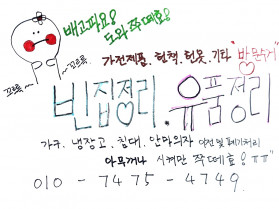 배고파요!
도와 주떼효!
꼬르륵
~꼬르륵
가전제품, 헌책, 헌옷, 기타 "방문수거"
빈집정리. 유품정리
가구, 냉장고, 침대, 안마의자 이전 및 폐기처리
아무꺼나 시켜만 쭈떼효!ㅠㅠ"
010 - 7475 - 4749